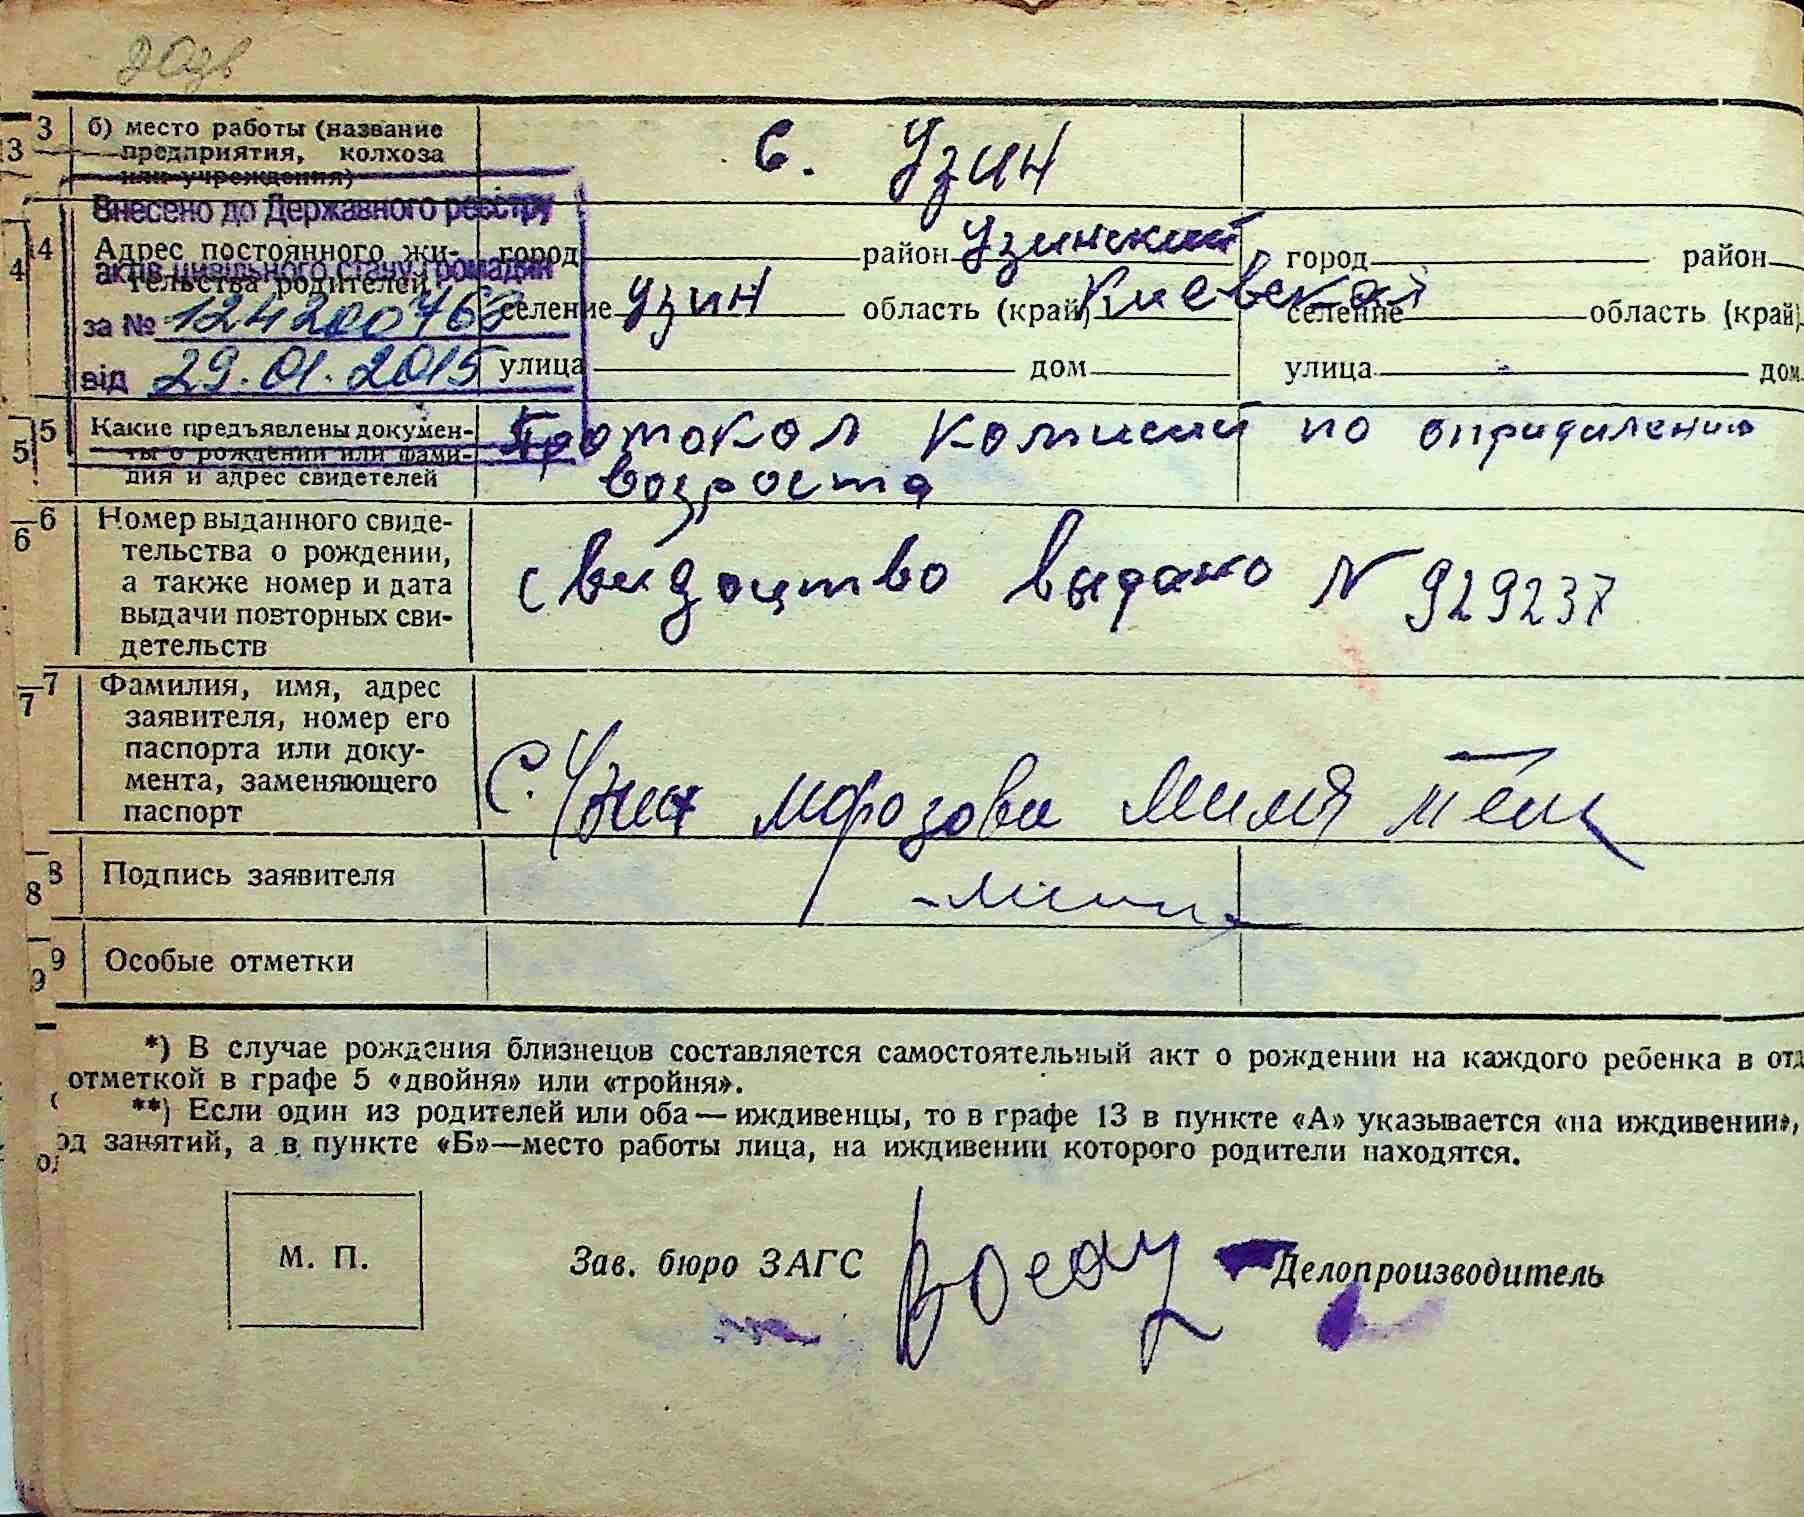 3 б) место работы (название
3 предприятия, колхоза
или учреждения)
с. Узин
Внесено до Державного реєстру
актів цивільного стану громадян
за № 12420076
від 29.01.2015
4 Адрес постоянного жи-
4 тельства родителей
город район Узинский
селение Узин область (край) Киевская
улица дом
город район
селение область (край)
улица дом
5 Какие предъявлены докумен-
5 ты о рождении или фами-
лия и адрес свидетелей
Протокол комисии по опридилению
возроста
6 Номер выданного свиде-
6 тельства о рождении,
а также номер и дата
выдачи повторных сви-
детельств
свидоцтво выдано N 929237
7 Фамилия, имя, адрес
7 заявителя, номер его
паспорта или доку-
мента, заменяющего
паспорт
с. Узин Морозова
8 Подпись заявителя
8
9 Особые отметки
9
*) В случае рождения близнецов составляется самостоятельный акт о рождении на каждого ребенка в отд
отметкой в графе 5 «двойня» или «тройня».
**) Если один из родителей или оба — иждивенцы, то в графе 13 в пункте «А» указывается «на иждивении»,
од занятий, а в пункте «Б»—место работы лица, на иждивении которого родители находятся.
М. П.
Зав. бюро ЗАГС Делопроизводитель